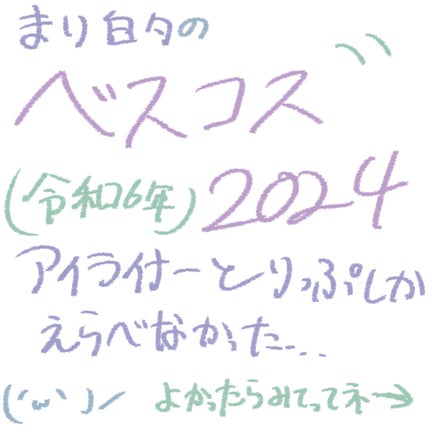 まり自身の
ベスコス
(令和6年) 2024
アイライナーとりっぷしか
えらべなかった...
(´ω`)ノ よかったらみてってネ→